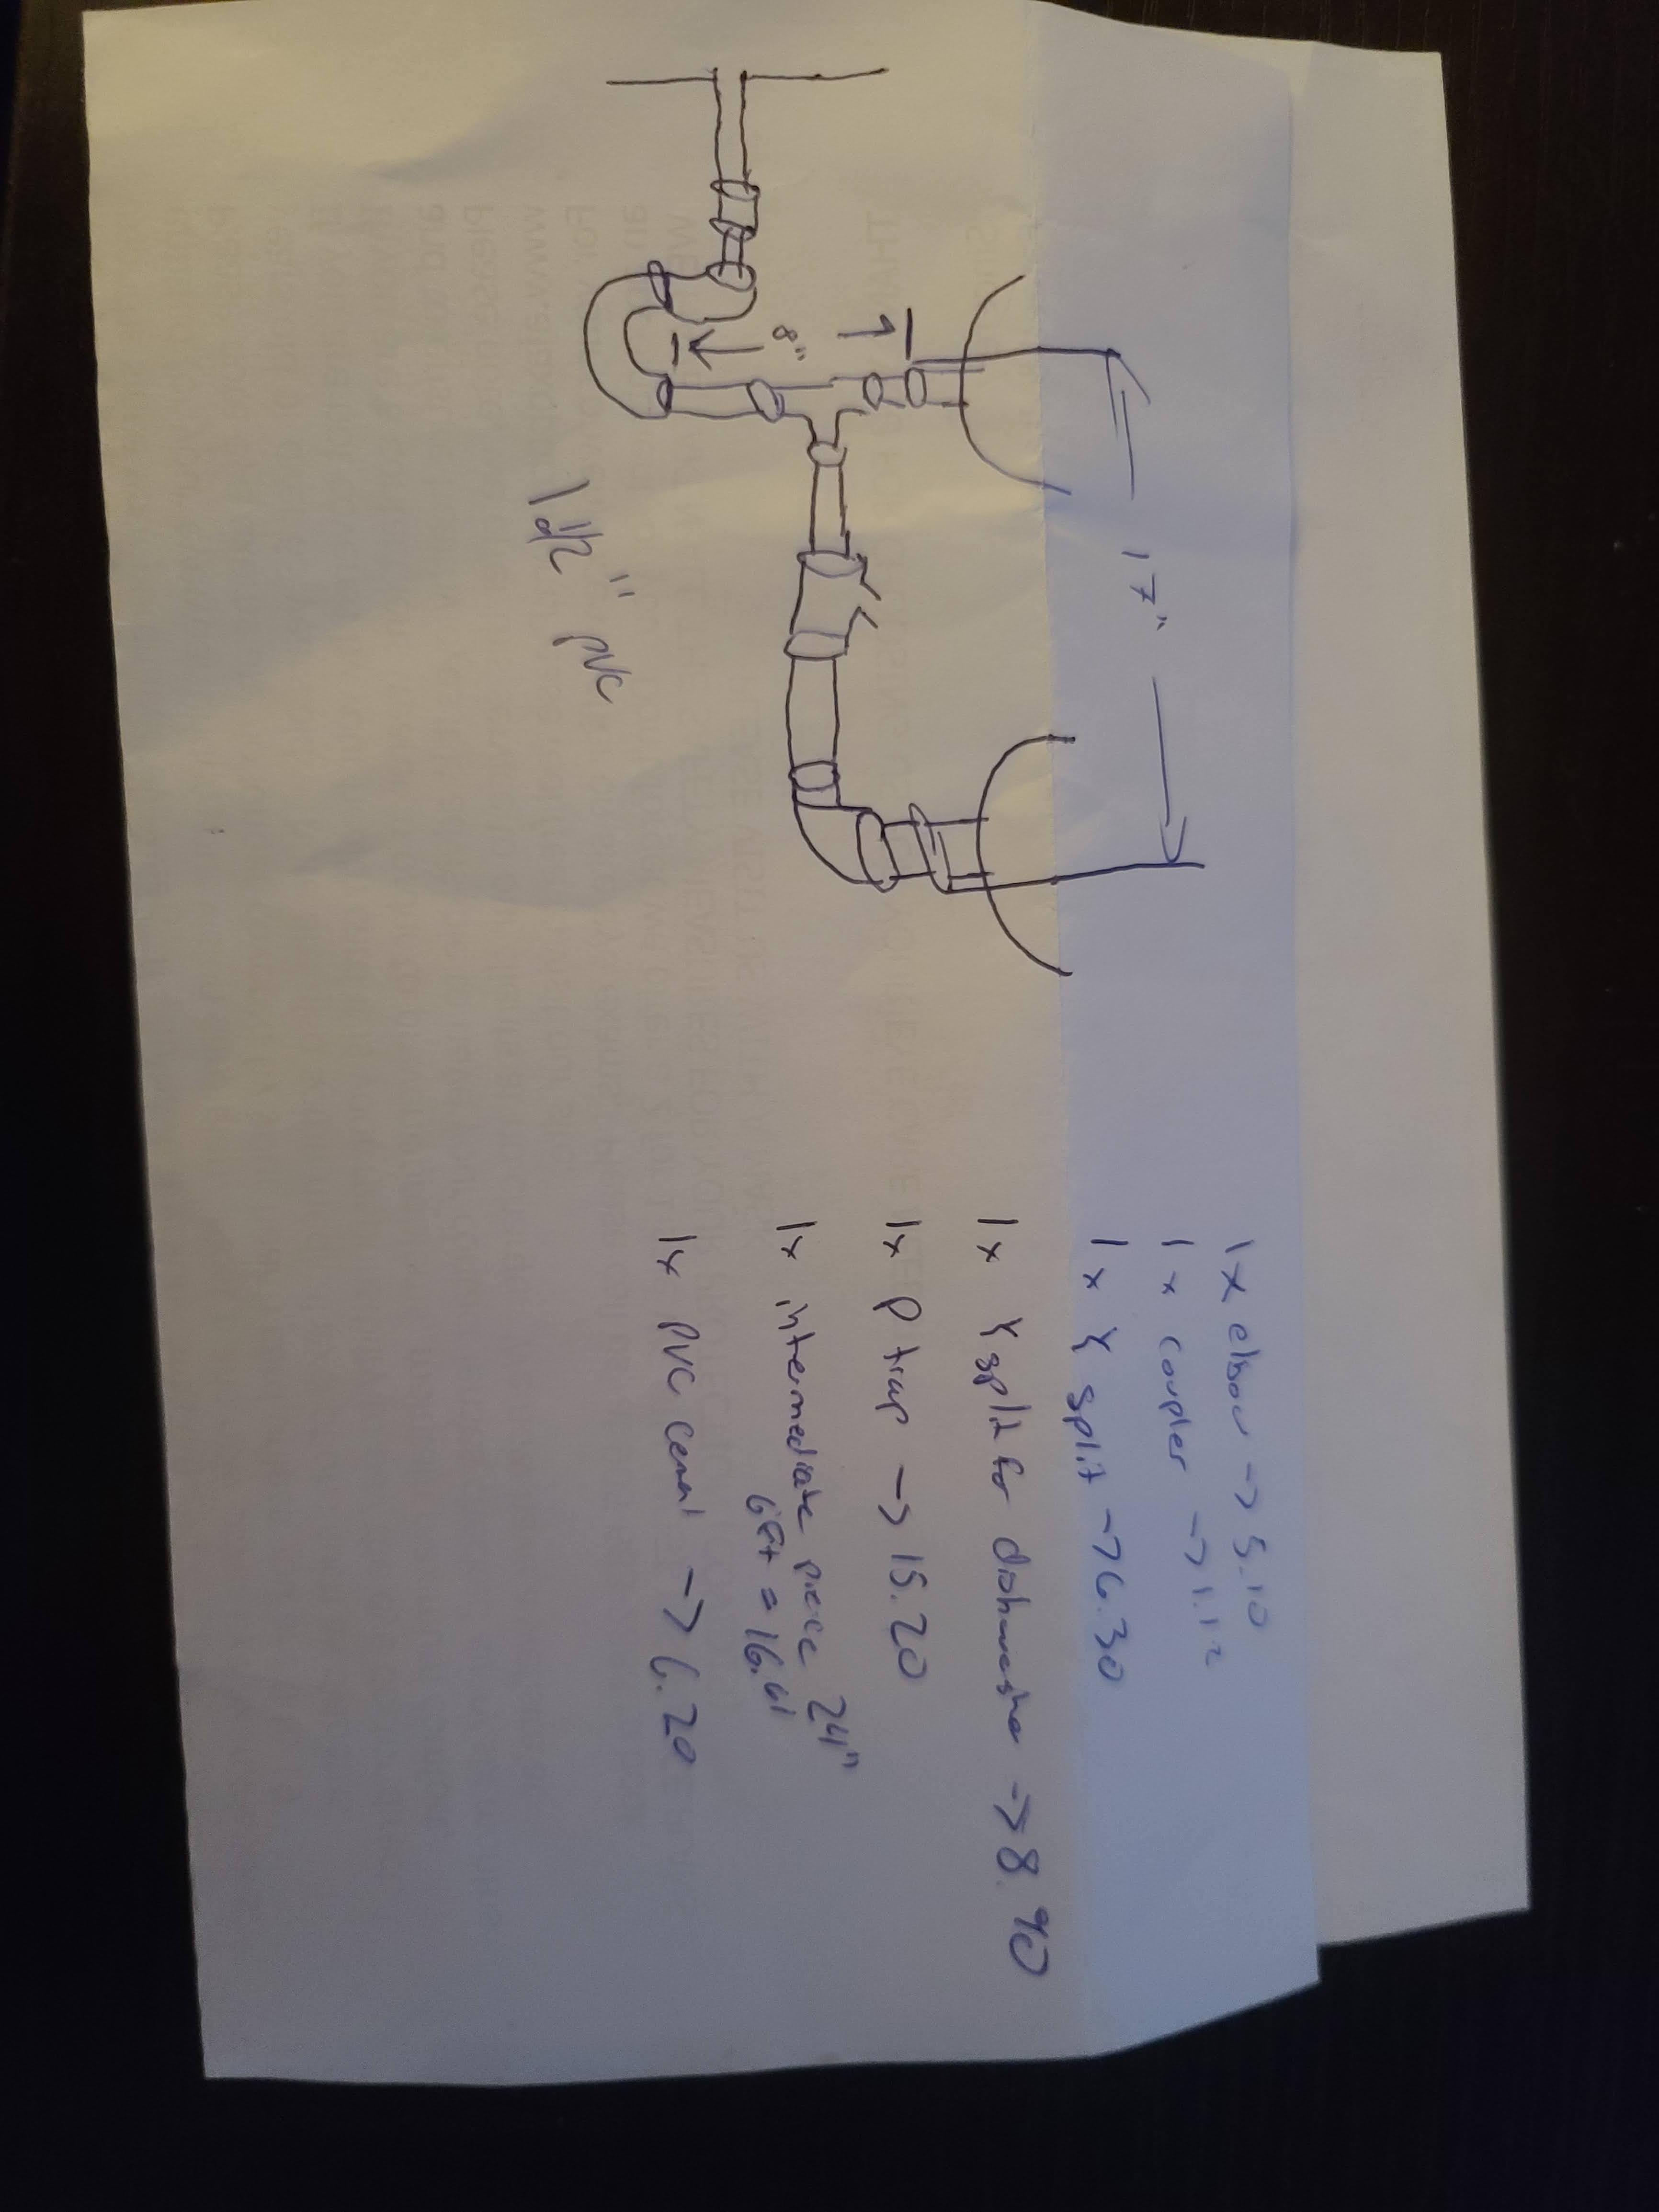 17"
8"
1 1/2" PVC
1x elbow -> 5.10
1x coupler -> 1.12
1x Y split -> 6.30
1x Y split for dishwasher -> 8.90
1x P trap -> 15.20
1x intermediate piece 24"
6ft = 16.61
1x PVC cement -> 6.20